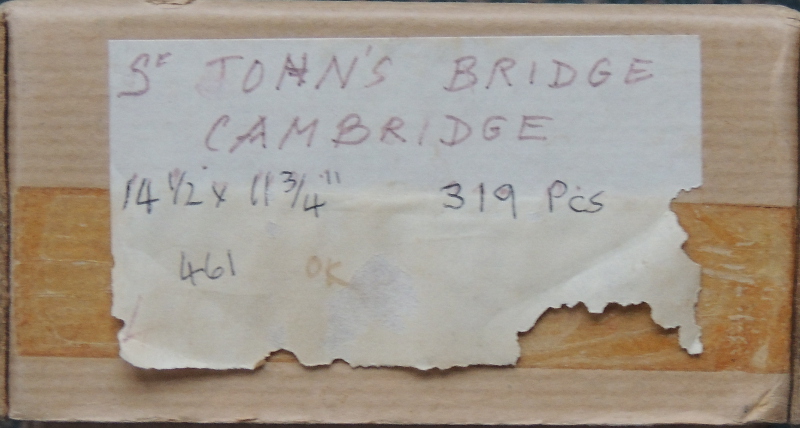 St JOHN'S BRIDGE
CAMBRIDGE
14 1/2 x 11 3/4" 319 Pcs
461 OK